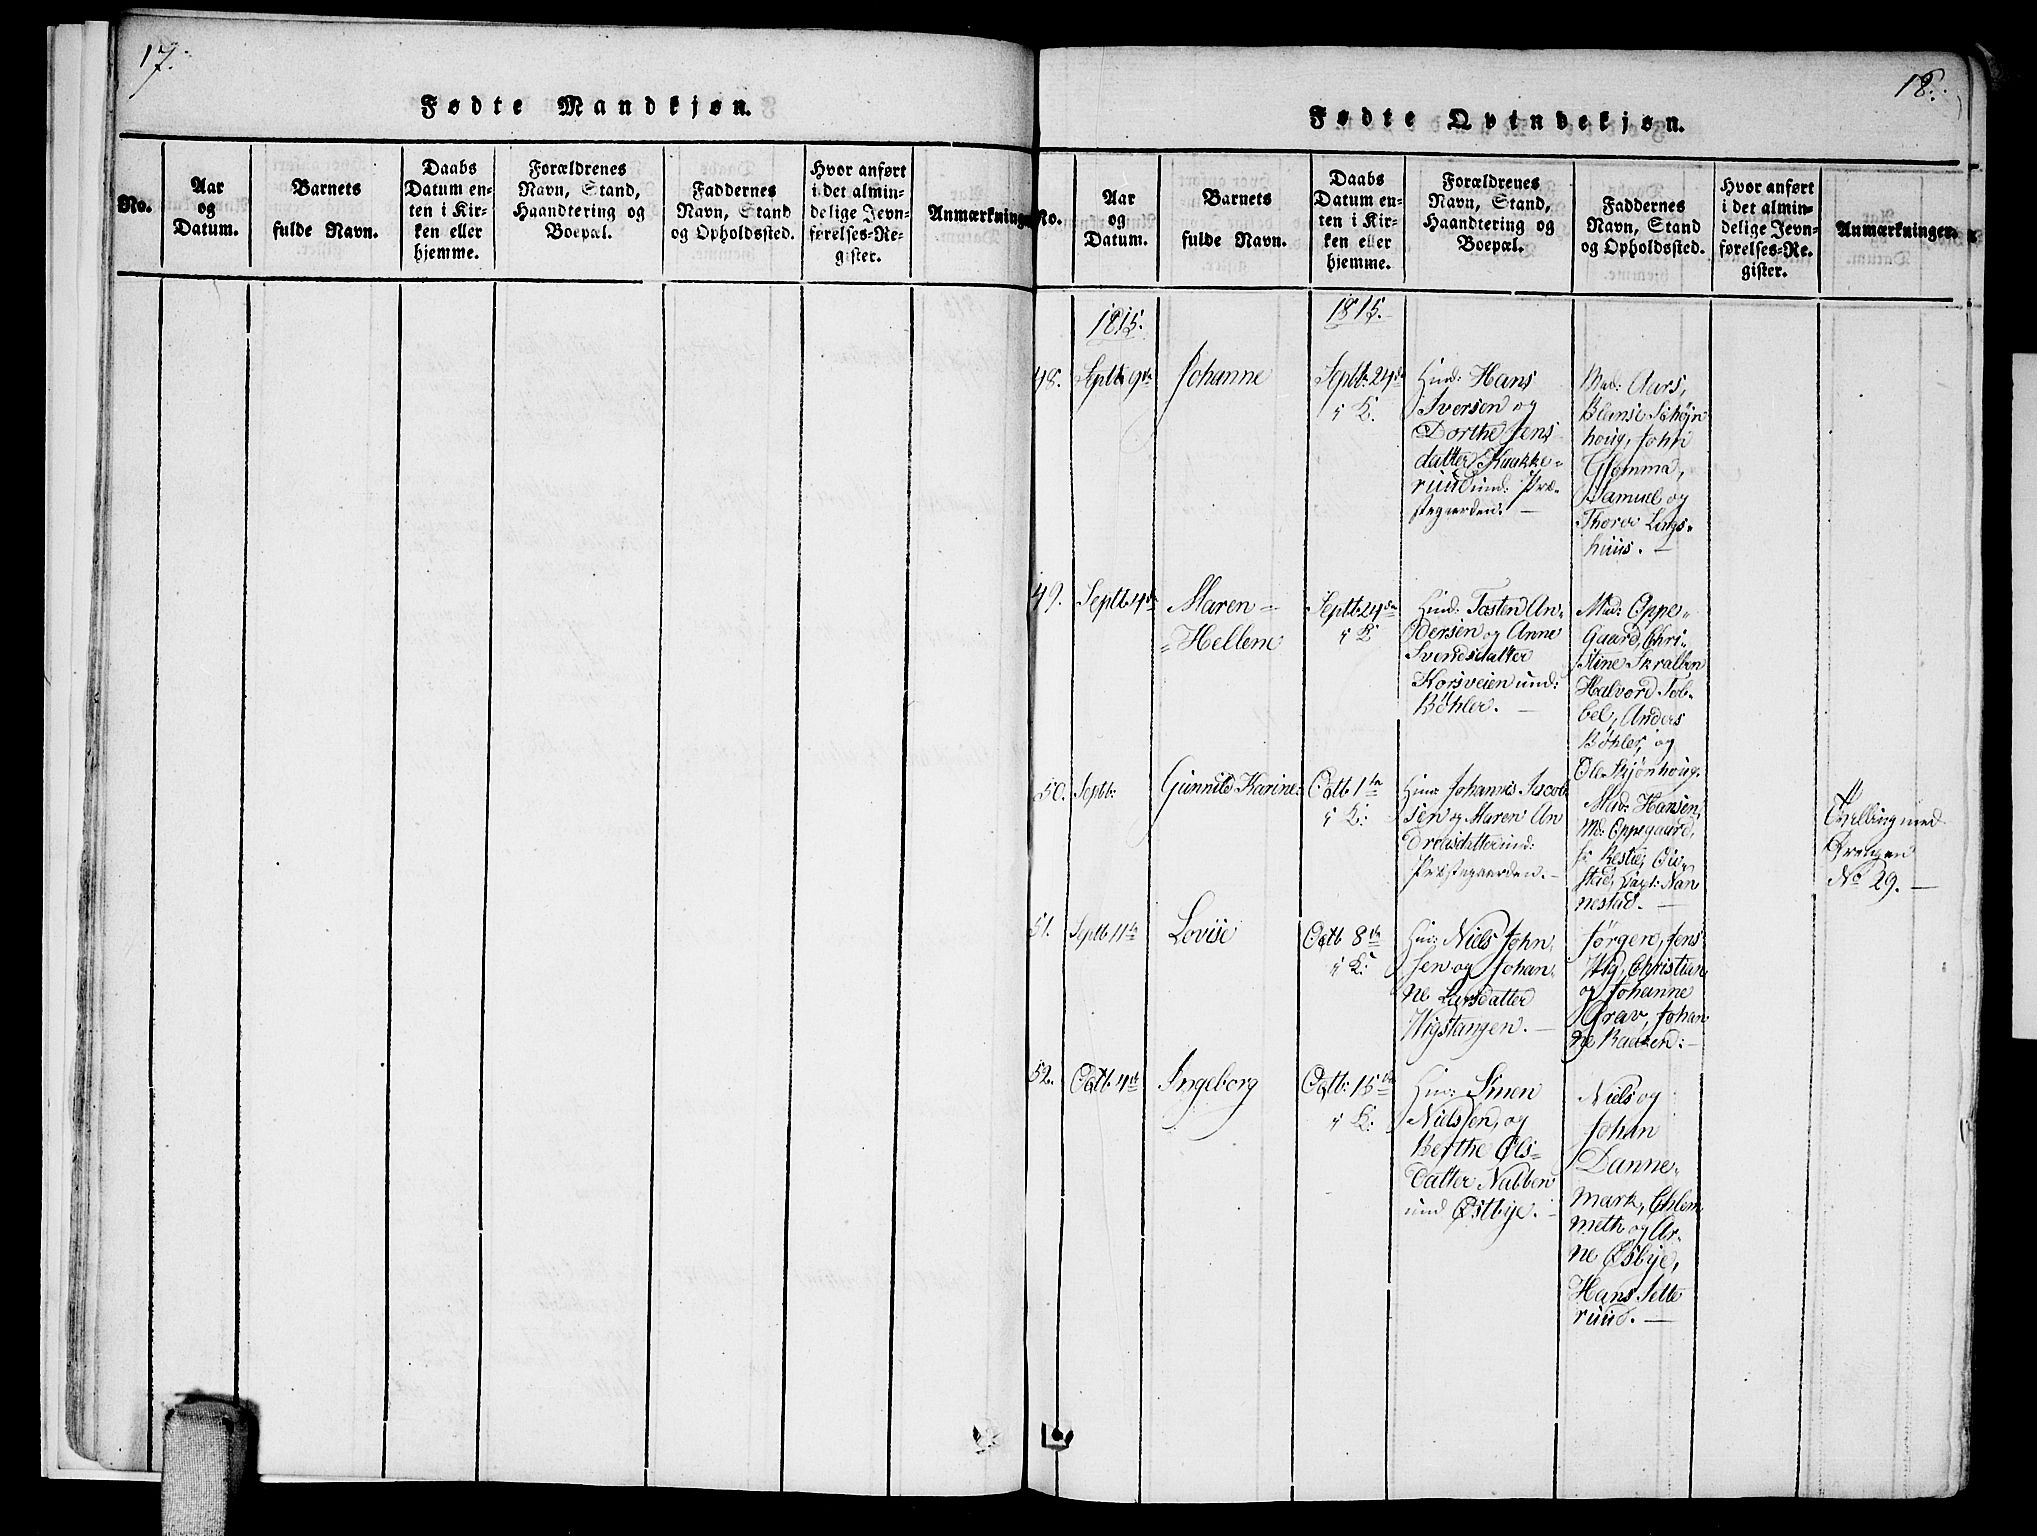 17.
Fødte Mandkjøn.
No.
Aar
og
Datum.
Barnets
fulde Navn.
Daabs
Datum en-
ten i Kir-
ken eller
hjemme.
Forældrenes
Navn, Stand,
Haandtering og
Boepæl.
Faddernes
Navn, Stand
og Opholdssted.
Hvor anført
i det almin-
delige Jevn-
førelses-Re-
gister.
Anmærkninger
18.
Fødte Qvindekjøn.
No.
Aar
og
Datum.
Barnets
fulde Navn.
Daabs
Datum en-
ten i Kir-
ken eller
hjemme.
Forældrenes
Navn, Stand,
Haandtering og
Boepæl.
Faddernes
Navn, Stand
og Opholdssted.
Hvor anført
i det almin-
delige Jevn-
førelses-Re-
gister.
Anmærkninger.
1815.
1815.
48.
Septb 9de
Johanne
Septb: 24de
i K:
Huus: Hans
Iversen og
Dorthe Jens
datter Kaakke-
ruud und: Præ-
stegaarden. —
Mad: Aars,
Schøjn
houg, John
Glomma,
Samuel og
Thorer Lags-
huus. —
49.
Septb. 4de
Maren =
= Hellene
Septb: 24de
i K
Huus: Tosten An-
dersen og Anne
Svendsdatter
Korsveien und:
Bøhler. —
Mad: Oppe-
Gaard, Chri-
stine Skralben
Halvord Tob-
bel, Anders
Bøhler, og
Ole Skjønhoug.
50.
Septb:
Gunnild Karine:
Octb 1ste
i K:
Huus: Johannes Jacob
sen og Maren An
dreasdatter und:
Præstegaarden. —
Mad: Hansen,
Md: Oppegaard,
Oiv-
stad, Nan
nestad. —
Tvilling med
Drengen
No 29. —
51.
Septb 11te
Lovise
Octb 8de
i K:
Huus: Niels John,
sen og Johan,
ne Larsdatter
Wigstangen. —
Jørgen, Jens
Wig, Christian
og Johanne
Grav, Johan
ne Bakken: —
52.
Octb 4de
Ingeborg
Octb: 15de
i K:
Huus: Simen
Nielssen, og
Berthe Ols-
datter Nabben
und Østbye. —
Niels og
Johan
Danne-
mark, Chlem
meth og Ar-
ne Østbye,
Hans Sette
ruud. —